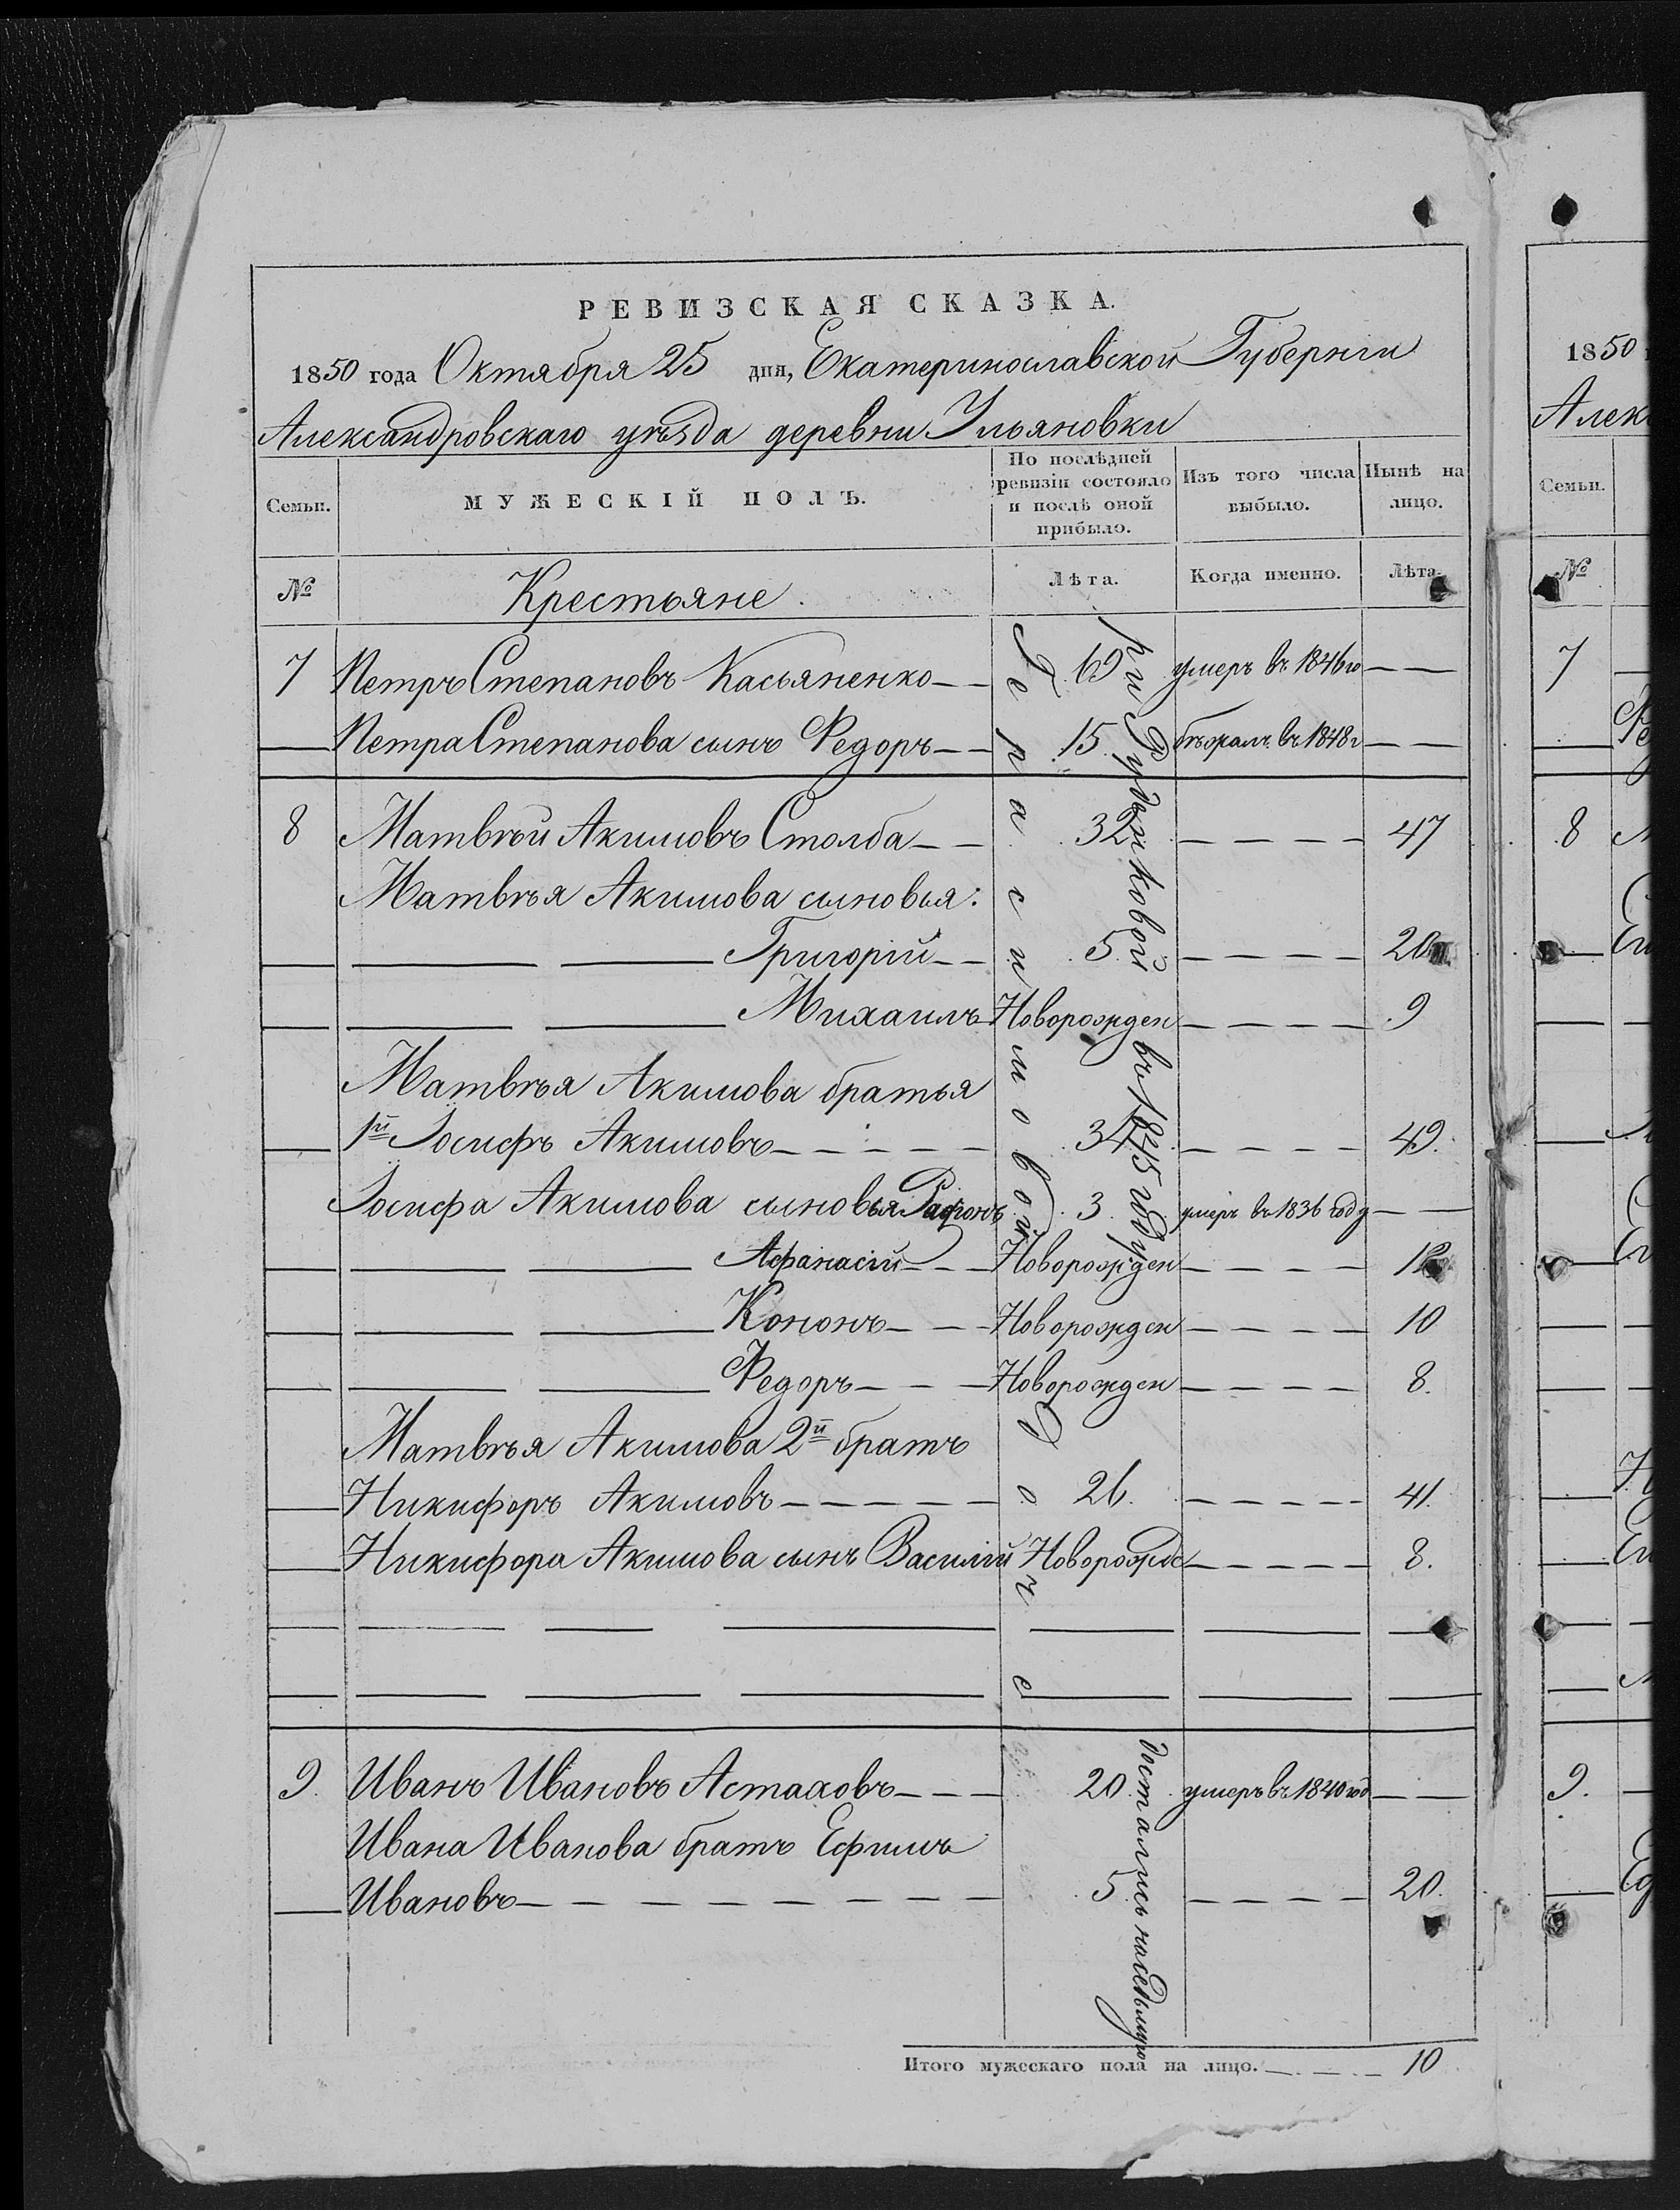 РЕВИЗСКАЯ СКАЗКА.
1850 года Октября 25 дня, Екатеринославской Губернiи
Александровскаго уѣзда деревни Ульяновки
Семьи. МУЖЕСКIЙ ПОЛЪ. По послѣдней ревизiи состояло и послѣ оной прибыло. Изъ того числа выбыло. Нынѣ на лицо.
№ Крестьяне. Лѣта. Когда именно. Лѣта.
7 Петръ Степановъ Касьяненко 69 умеръ въ 1846го
Петра Степанова сынъ Федоръ 15 бѣжалъ въ 1848г
8 Матвѣй Акимовъ Столба 32 47
Матвѣя Акимова сыновья:
Григорiй 5 20
Михаилъ Новорожден 9
Матвѣя Акимова братья
1й Iосифъ Акимовъ 34 49.
Iосифа Акимова сыновья 3 умеръ въ 1836 году
Афанасiй Новорожден 12
Кононъ Новорожден 10
Федоръ Новорожден 8.
Матвѣя Акимова 2й братъ
Никифоръ Акимовъ 26. 41.
Никифора Акимова сынъ Василiй Новорожде 8.
9. Иванъ Ивановъ Астаховъ 20 умеръ въ 1840 год
Ивана Иванова братъ Ефимъ
Ивановъ 5 20.
Герасимовой Доч
ри Рудьковой въ 1845 году
достались
Итого мужескаго пола на лицо. 10
1850
Алек
Семьи.
№
7
8
9.